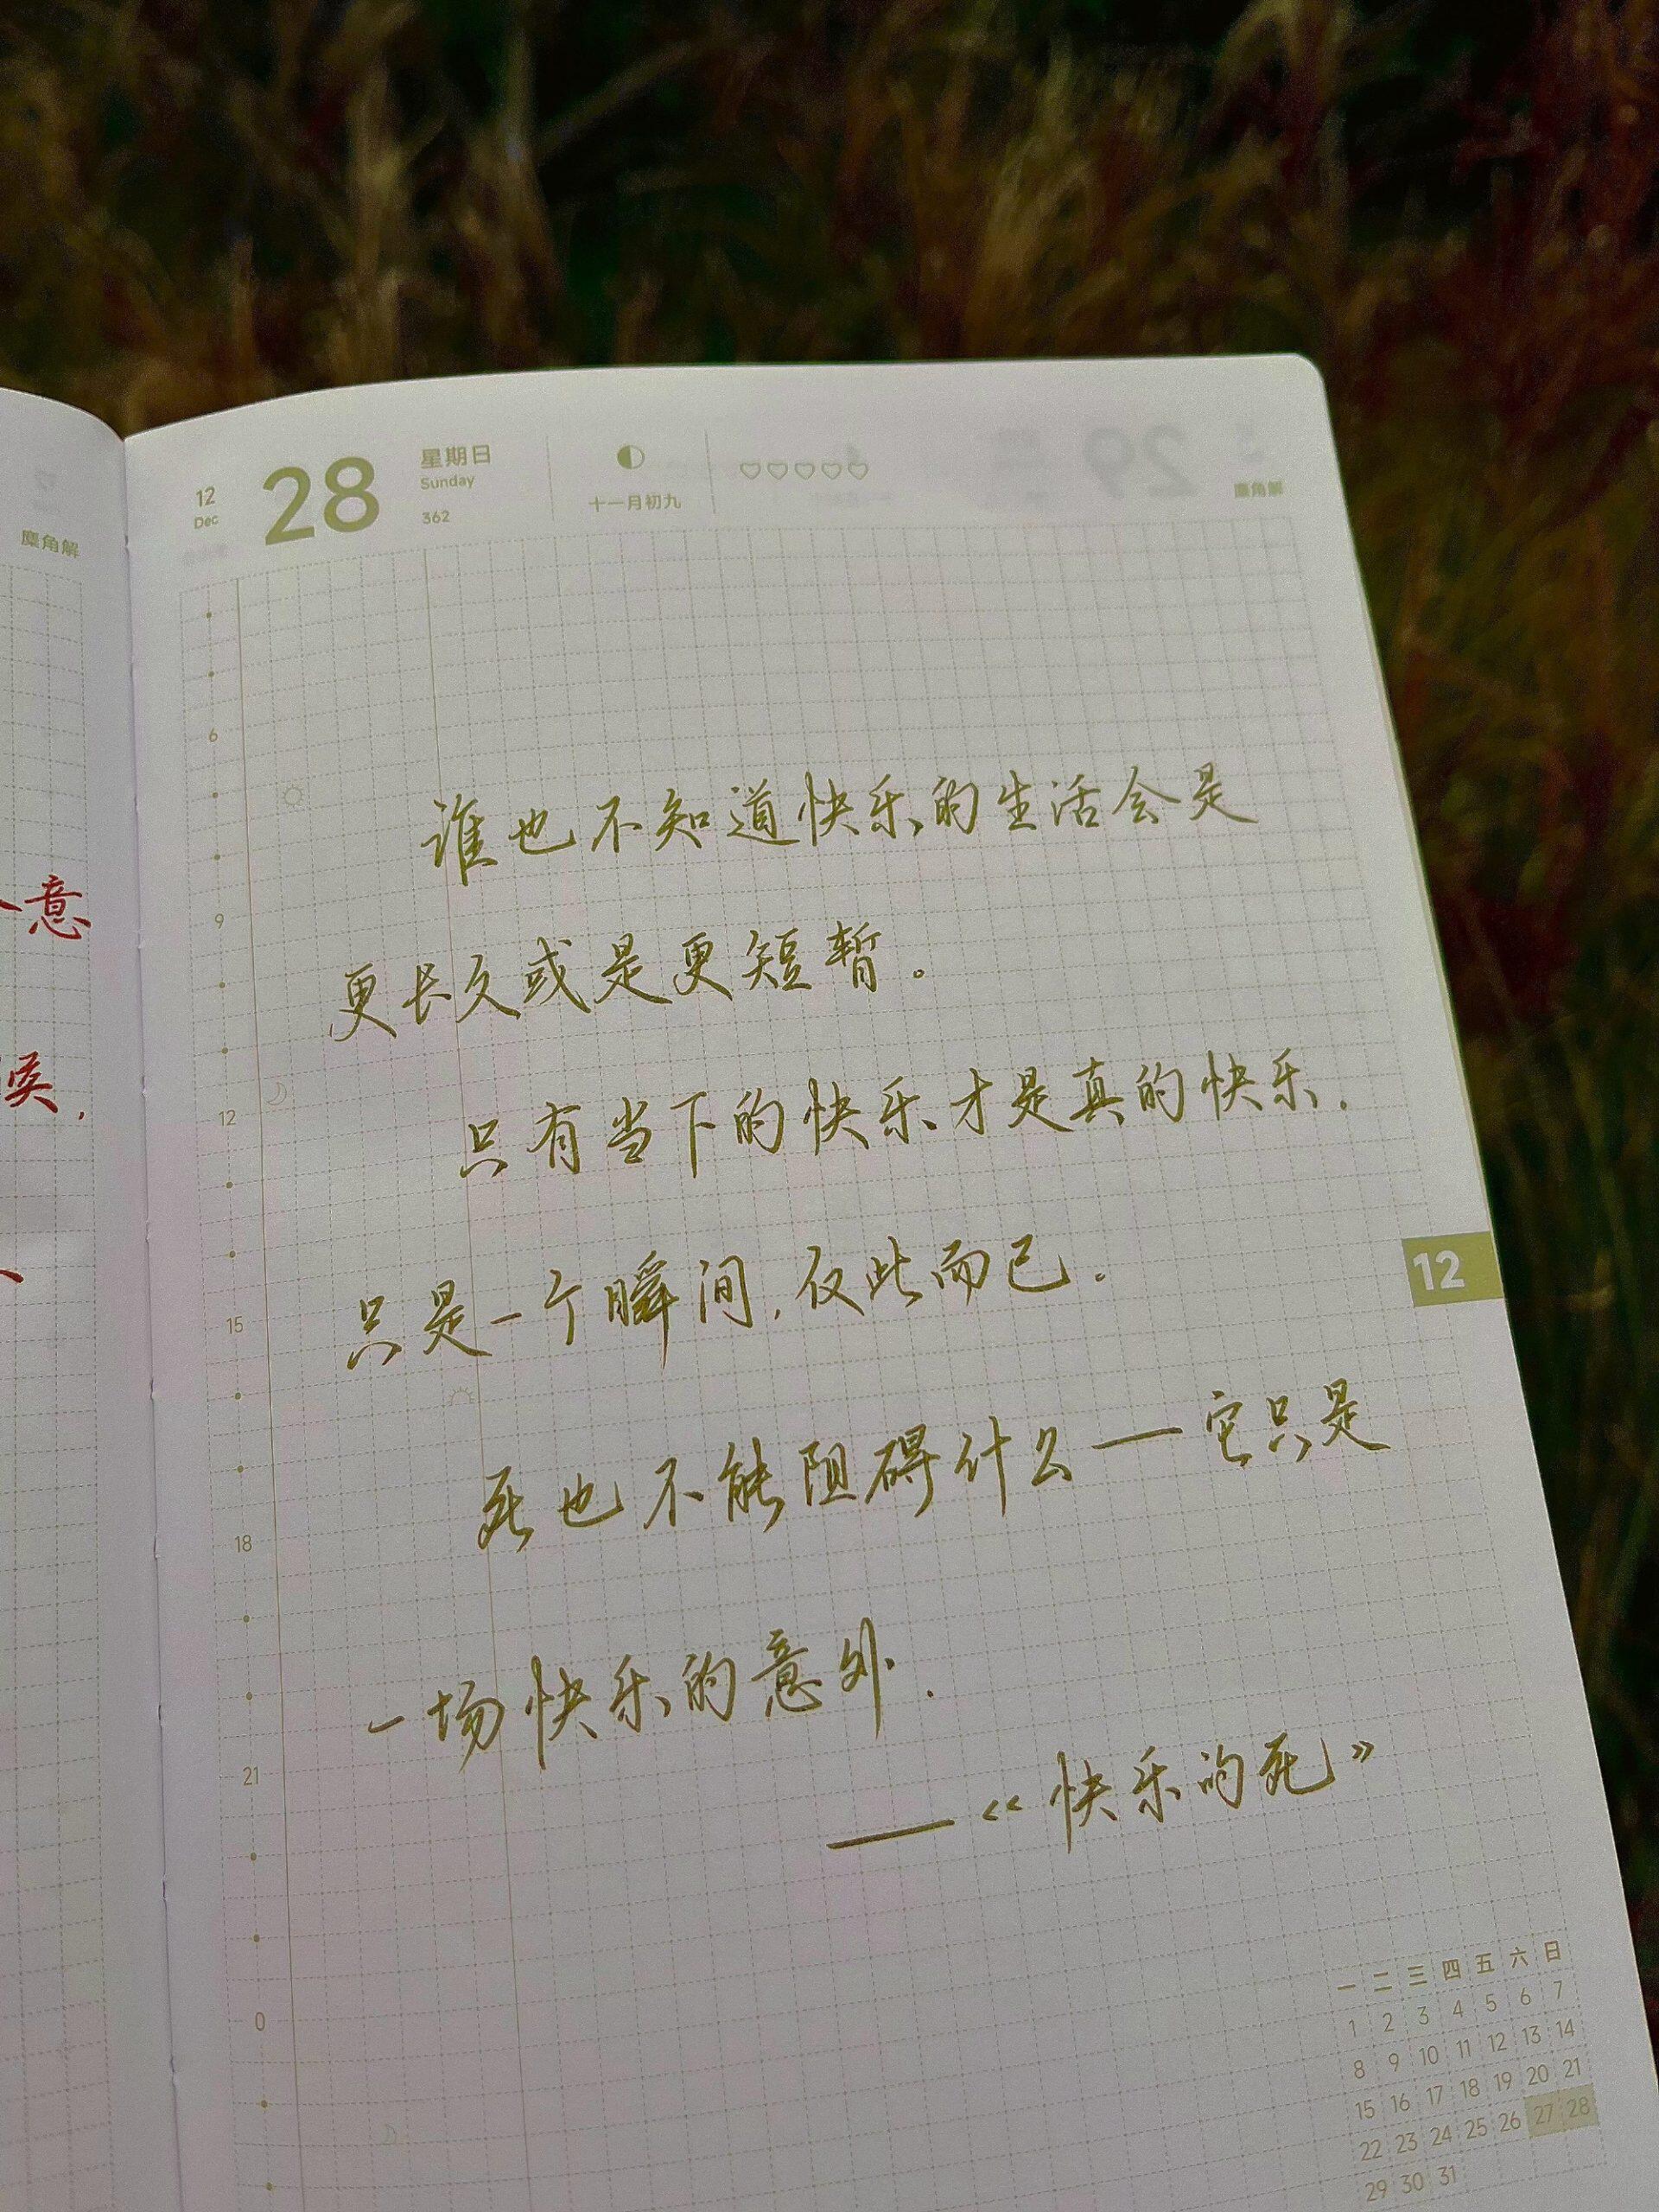 麋角解
意
12
Dec
28
星期日
Sunday
362
十一月初九
29
麋角解
6
9
12
15
18
21
0
谁也不知道快乐的生活会是
更长久或是更短暂。
只有当下的快乐才是真的快乐.
只是一个瞬间,仅此而已.
死也不能阻碍什么——它只是
一场快乐的意外.
——《快乐的死》
12
一 二 三 四 五 六 日
1 2 3 4 5 6 7
8 9 10 11 12 13 14
15 16 17 18 19 20 21
22 23 24 25 26 27 28
29 30 31